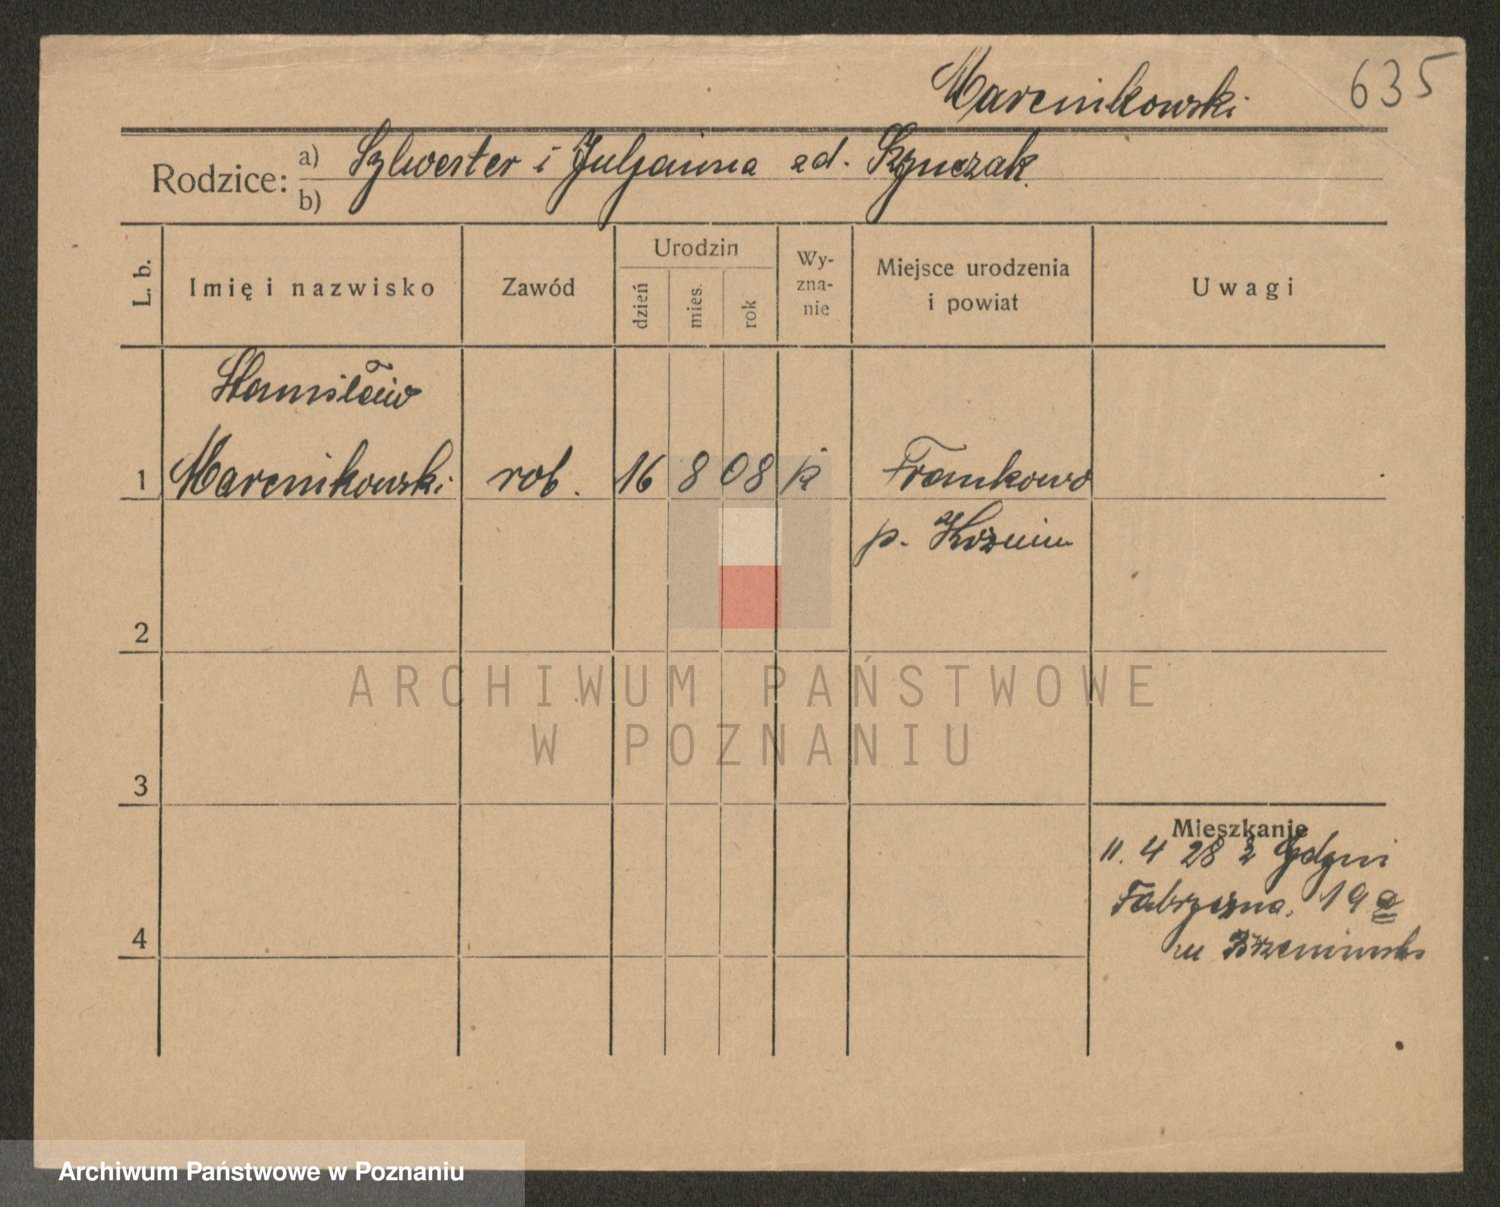 Marcinikowski
635
Rodzice: a) Sylwester i Juljanna zd.
b)
L. b.
Imię i nazwisko
Zawód
Urodzin
dzień
mies.
rok
Wy-
zna-
nie
Miejsce urodzenia
i powiat
Uwagi
Stanisław
1 Marcinikowski rob. 16 8 08 k Frankowo
p.
2
ARCHIWUM PAŃSTWOWE
W POZNANIU
3
Mieszkanie
11. 4 28 z Gdyni
Fabryczna. 19 a
4
Archiwum Państwowe w Poznaniu